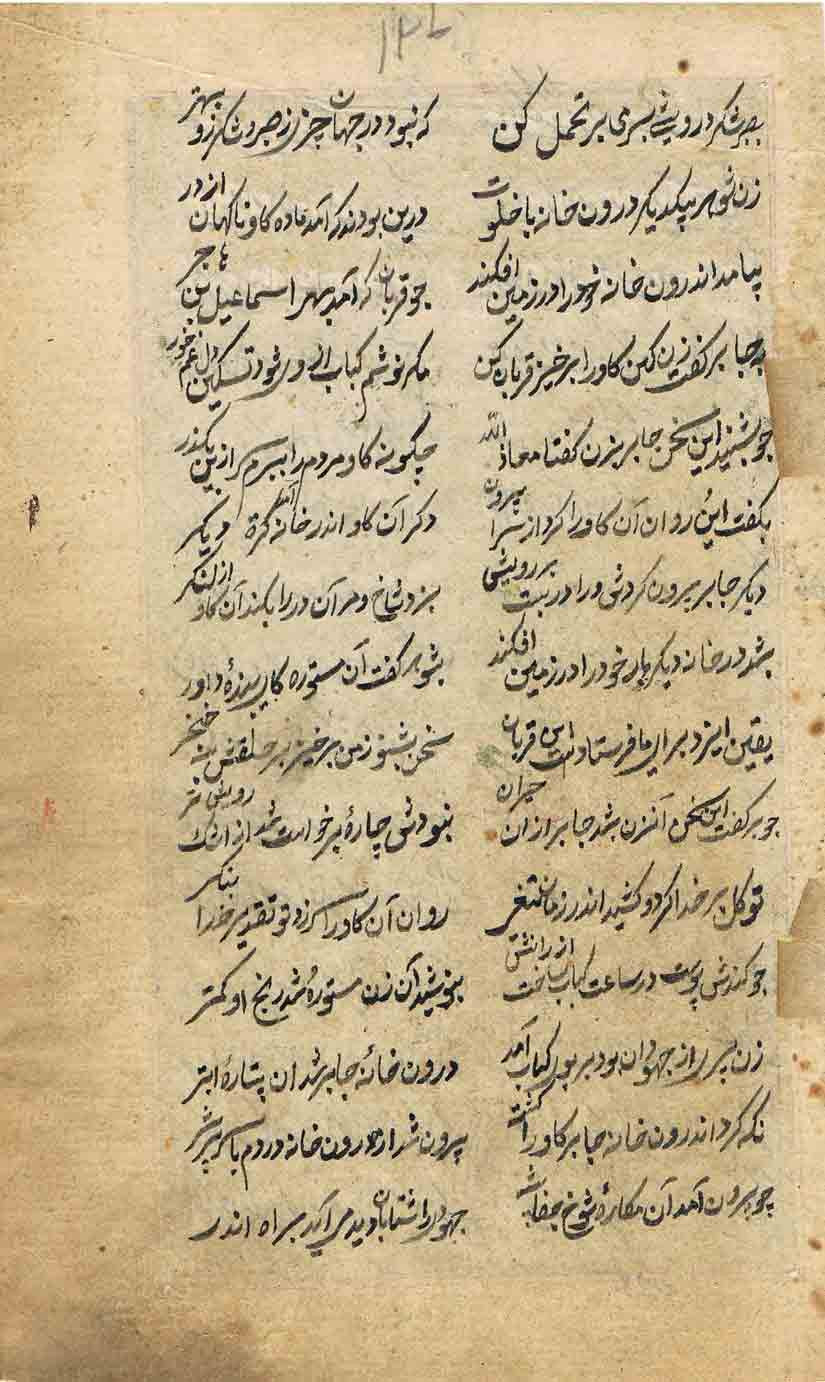 ۱۳۶
بصبر شکر درویشی بسر می بر تحمل کن که نبود در جهان چیزی ز صبر و شکر زو بهتر
زن شوهر بیکدیگر درون خانه با خلوت درین بودند که آمد ماده کاو ناکهان از در
بیامد اندرون خانه خود را در زمین افکند چو قربان که آمد بهر اسماعیل بن هاجر
به جابر کفت زن کین کاو را برخیز قربان کن مکر نوشم کباب از وی شود تسکین دل غم خور
چو بشنید این سخن جابر بزن کفتا معاذ الله چکونه کاو مردم را ببرم سر ازین بکذر
بکفت این روان آن کاو را کرد از سرا بیرون دکر آن کاو اندر خانه آمد کرة دیکر
دیکر جابر بیرون کردش و را در بست بر رویشی بزد شاخ و مر آن در را بکند آن کاو از لنکر
بشد در خانه دیکر بار خود را در زمین افکند بشوهر کفت آن مستوره کای بندهٔ داور
یقین ایزد برای ما فرستادست این قربان سخن بشنو ز من برخیز بر حلقش بنه خنجر
چو بر کفت این سخن آنزن بشد جابر از ان حیران نبودش چارهٔ برخواست شد از اشک رویش تر
توکل بر خدا کرد و کشید اندر زمان روان آن کاو را سر زد تو تقدیر خدا بنکر
چو کندش پوست در ساعت کباب ساخت از رانش بنوشید آن زن مستوره شد رنج او کمتر
زن پیری از جهودان بود بر بوی کباب آمد درون خانهٔ جابر شد ان پتارهٔ ابتر
نکه کرد اندرون خانه جابر کاو را کشت بیرون شد از درون خانه در دم با سر پر شر
چو بیرون آمد آن مکارهٔ شوخ جفا پیشه جهودی را شتابان دید می آید براه اندر